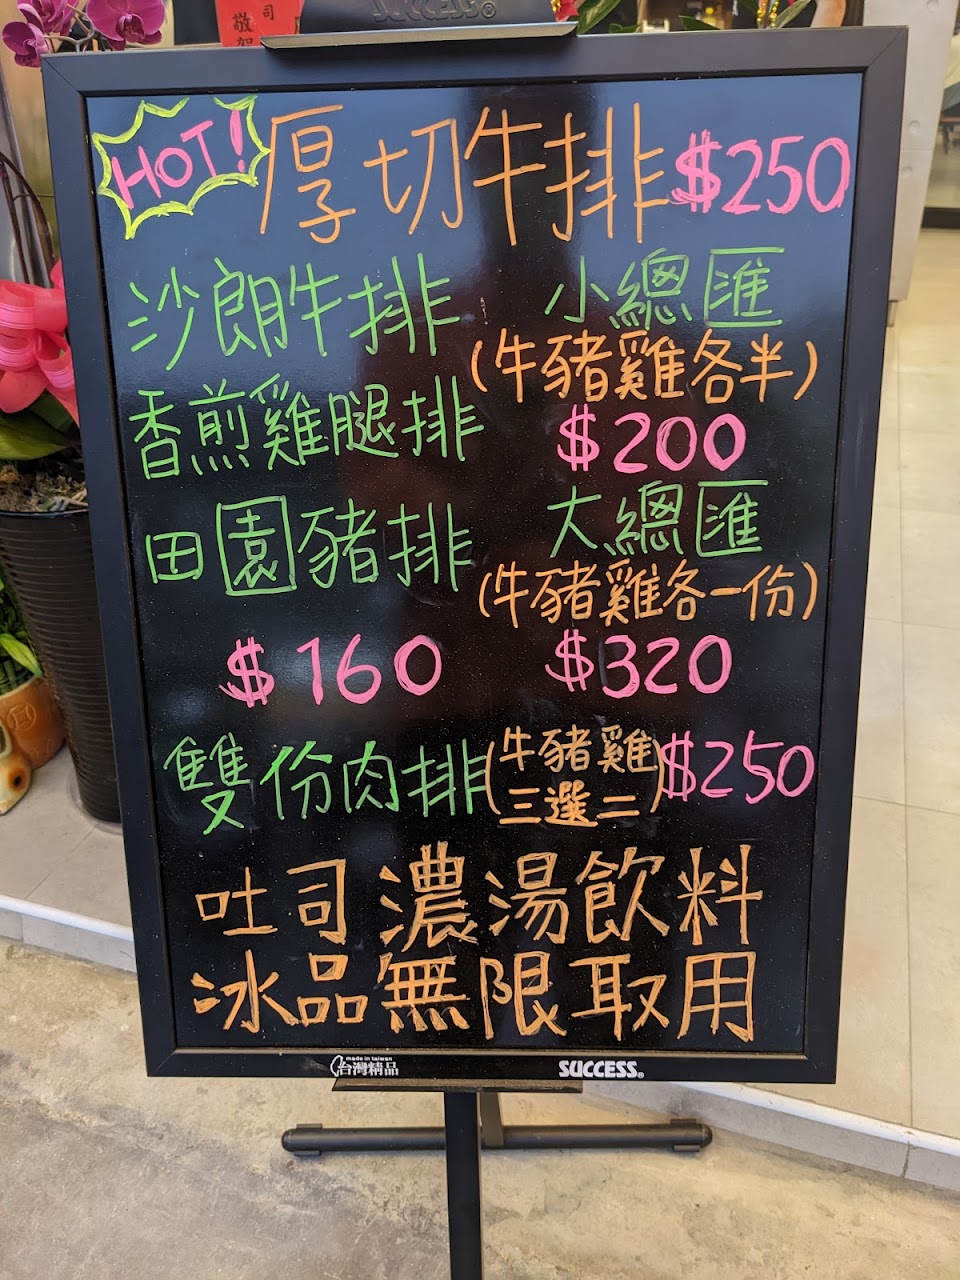 司
敬賀
SUCCESS®
HOT! 厚切牛排 $250
沙朗牛排
香煎雞腿排
田園豬排
$160
小總匯
(牛豬雞各半)
$200
大總匯
(牛豬雞各一份)
$320
雙份肉排(牛豬雞三選二)$250
吐司濃湯飲料
冰品無限取用
made in taiwan
台灣精品
SUCCESS®